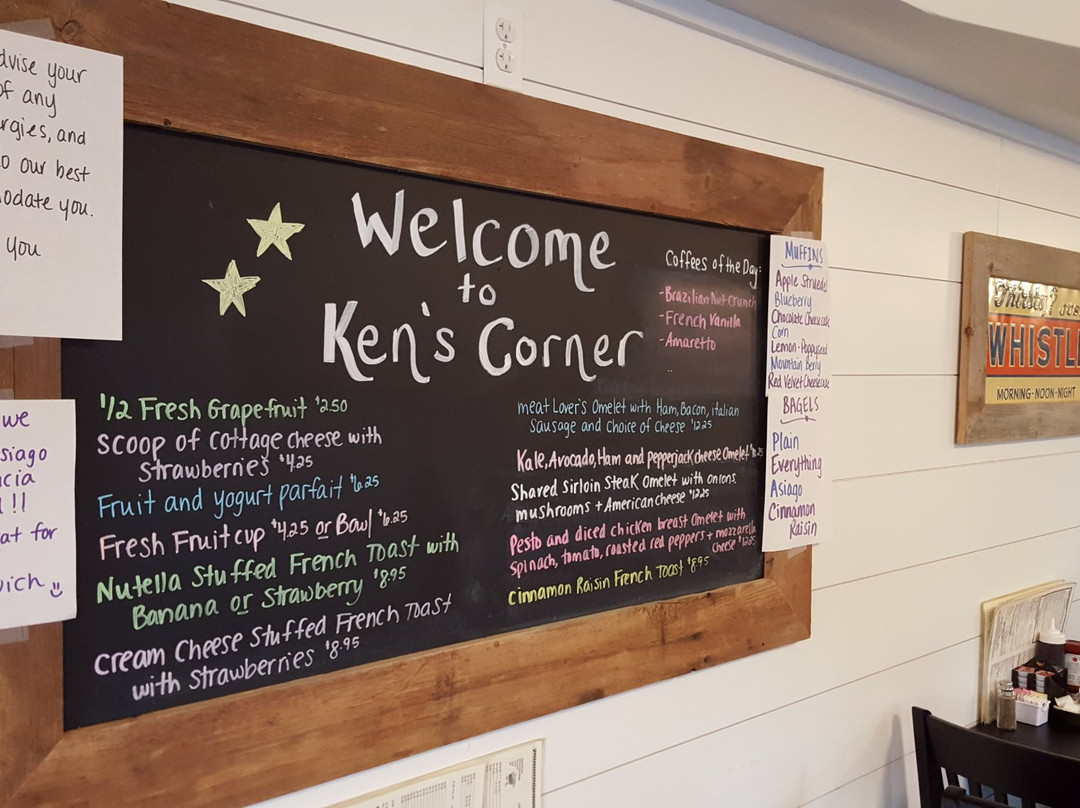 advise your
of any
and
o our best
you.
you
we
!!
at for
Welcome
to
Ken's Corner
1/2 Fresh Grapefruit $2.50
scoop of cottage cheese with
strawberries $4.25
Fruit and yogurt parfait $6.25
Fresh Fruit cup $4.25 or Bowl $6.25
Nutella Stuffed French Toast with
Banana or Strawberry $8.95
cream cheese Stuffed French Toast
with Strawberries $8.95
Coffees of the Day:
-Brazilian Nut Crunch
-French Vanilla
-Amaretto
meat Lover's Omelet with Ham, Bacon, italian
Sausage and choice of cheese $12.25
Kale, Avocado, Ham and pepperjack cheese Omelet
Shaved Sirloin Steak Omelet with onions,
mushrooms + American cheese $12.25
Pesto and diced chicken breast Omelet with
spinach, tomato, roasted red peppers + mozzarella
cheese
cinnamon Raisin French Toast $8.95
MUFFINS
Apple Struedel
Blueberry
Chocolate Cheesecake
Corn
Lemon-Poppyseed
Mountain Berry
Red Velvet Cheesecake
BAGELS
Plain
Everything
Asiago
Cinnamon
Raisin
Thirsty?
WHISTL
MORNING-NOON-NIGHT